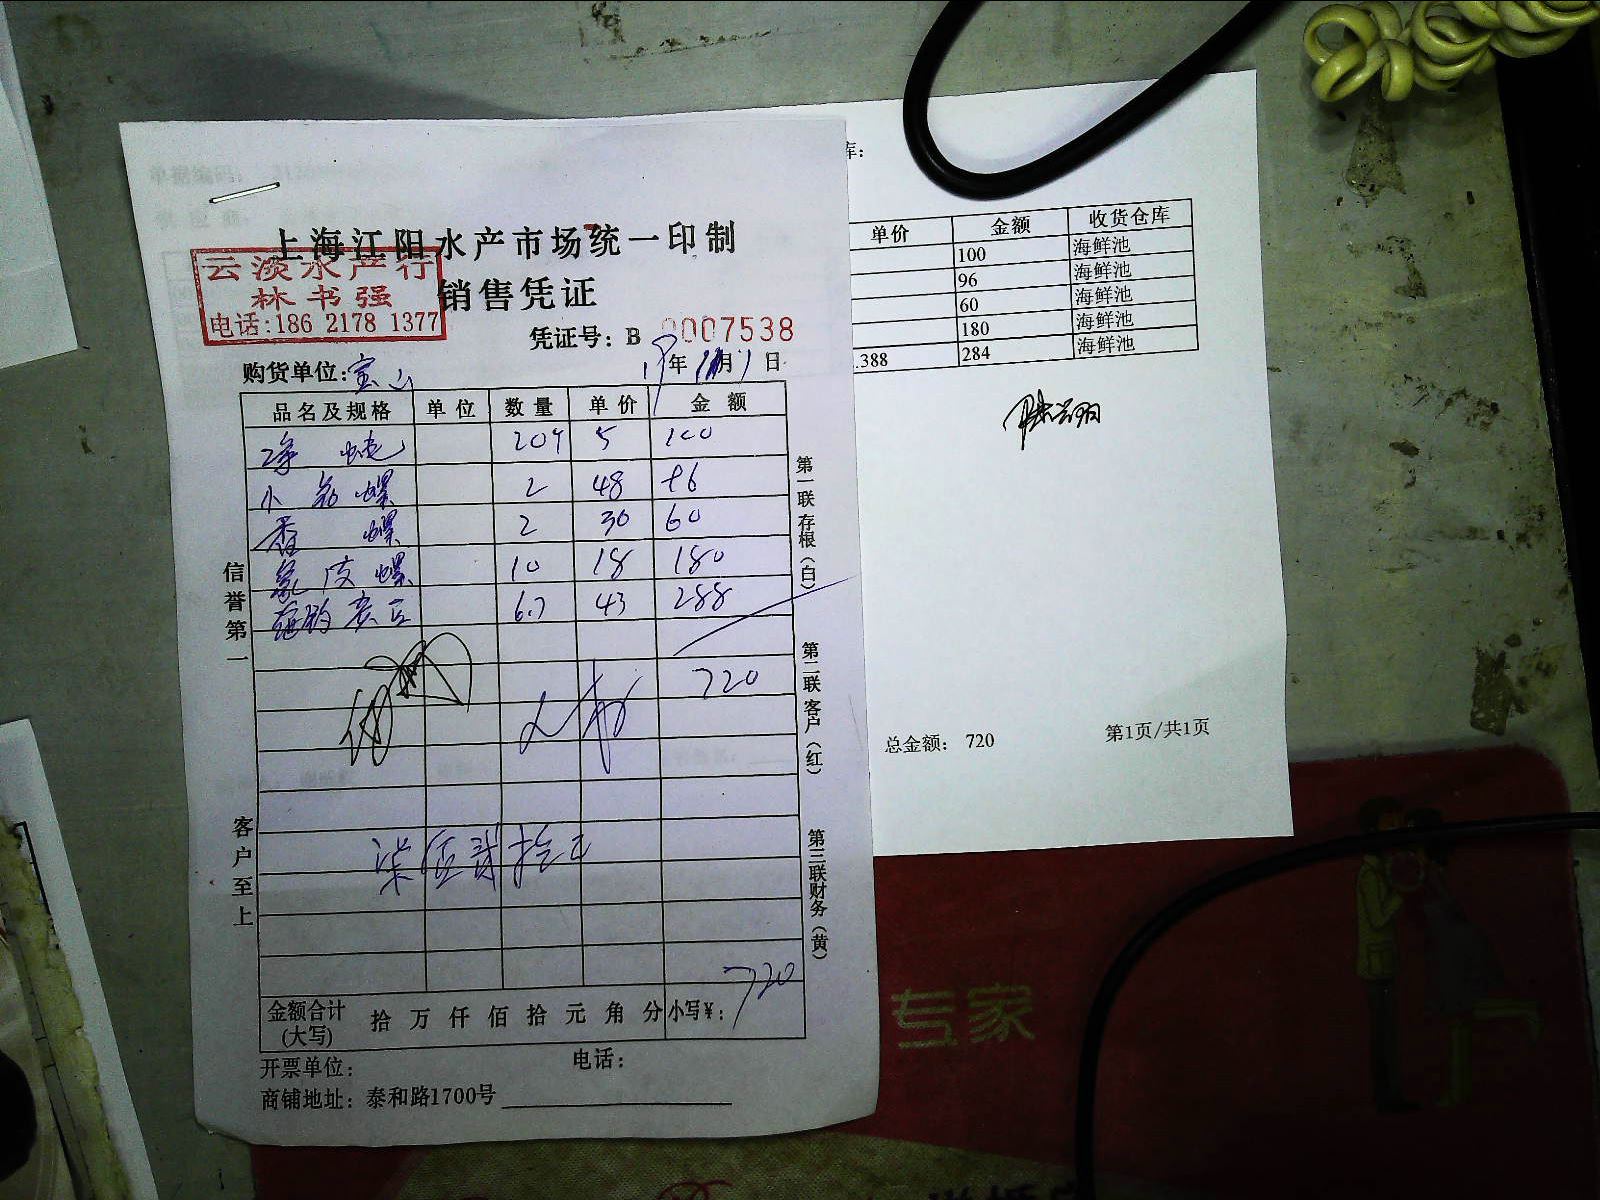 上海江阳水产市场统一印制
云淡水产行
林书强
电话:186 2178 1377
销售凭证
凭证号: B 0007538
购货单位: 宝山
年 月 1 日
品名及规格 单位 数量 单价 金额
5 100
小 螺 2 48 96
香 螺 2 30 60
象皮螺 10 18 180
6.7 43 288
720
柒佰贰拾元
金额合计(大写) 拾 万 仟 佰 拾 元 角 分 小写¥: 720
开票单位: 电话:
商铺地址: 泰和路1700号
信誉第一
客户至上
第一联存根(白)
第二联客户(红)
第三联财务(黄)
库:
单价 金额 收货仓库
100 海鲜池
96 海鲜池
60 海鲜池
180 海鲜池
.388 284 海鲜池
总金额: 720 第1页/共1页
专家